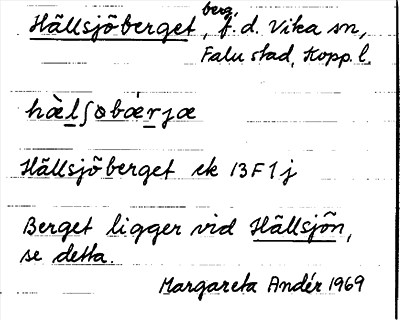 Hällsjöberget, berg, f.d. Vika sn,
Falu stad, Kopp. l.
hæ̀lʃobǽrjæ
Hällsjöberget ek 13F1j
Berget ligger vid Hällsjön,
se detta.
Margareta Andér 1969